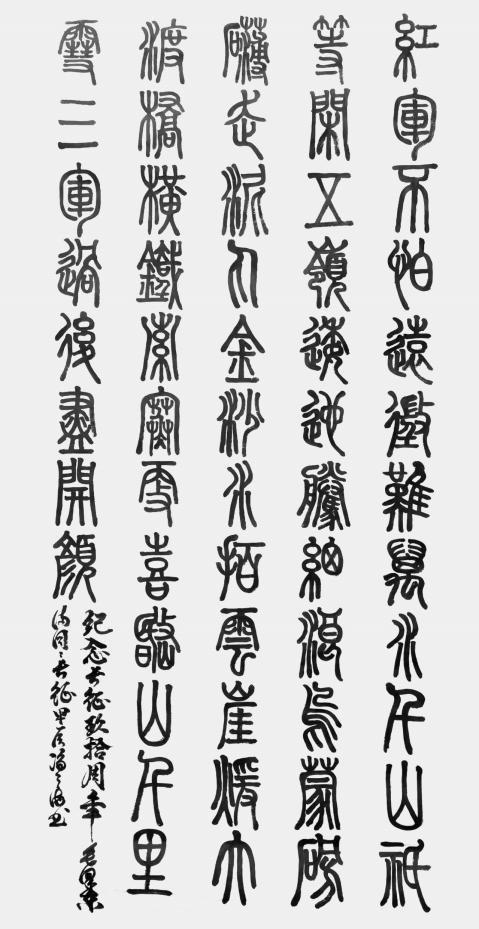 紅軍不怕遠徵難萬水千山祇
等閑五嶺逶迤騰細浪烏蒙磅
礴走泥丸金沙水拍雲崖暖大
渡橋橫鐵索寒更喜岷山千里
雪三軍過後盡開顏
紀念長征玖拾周年毛澤東
長征書